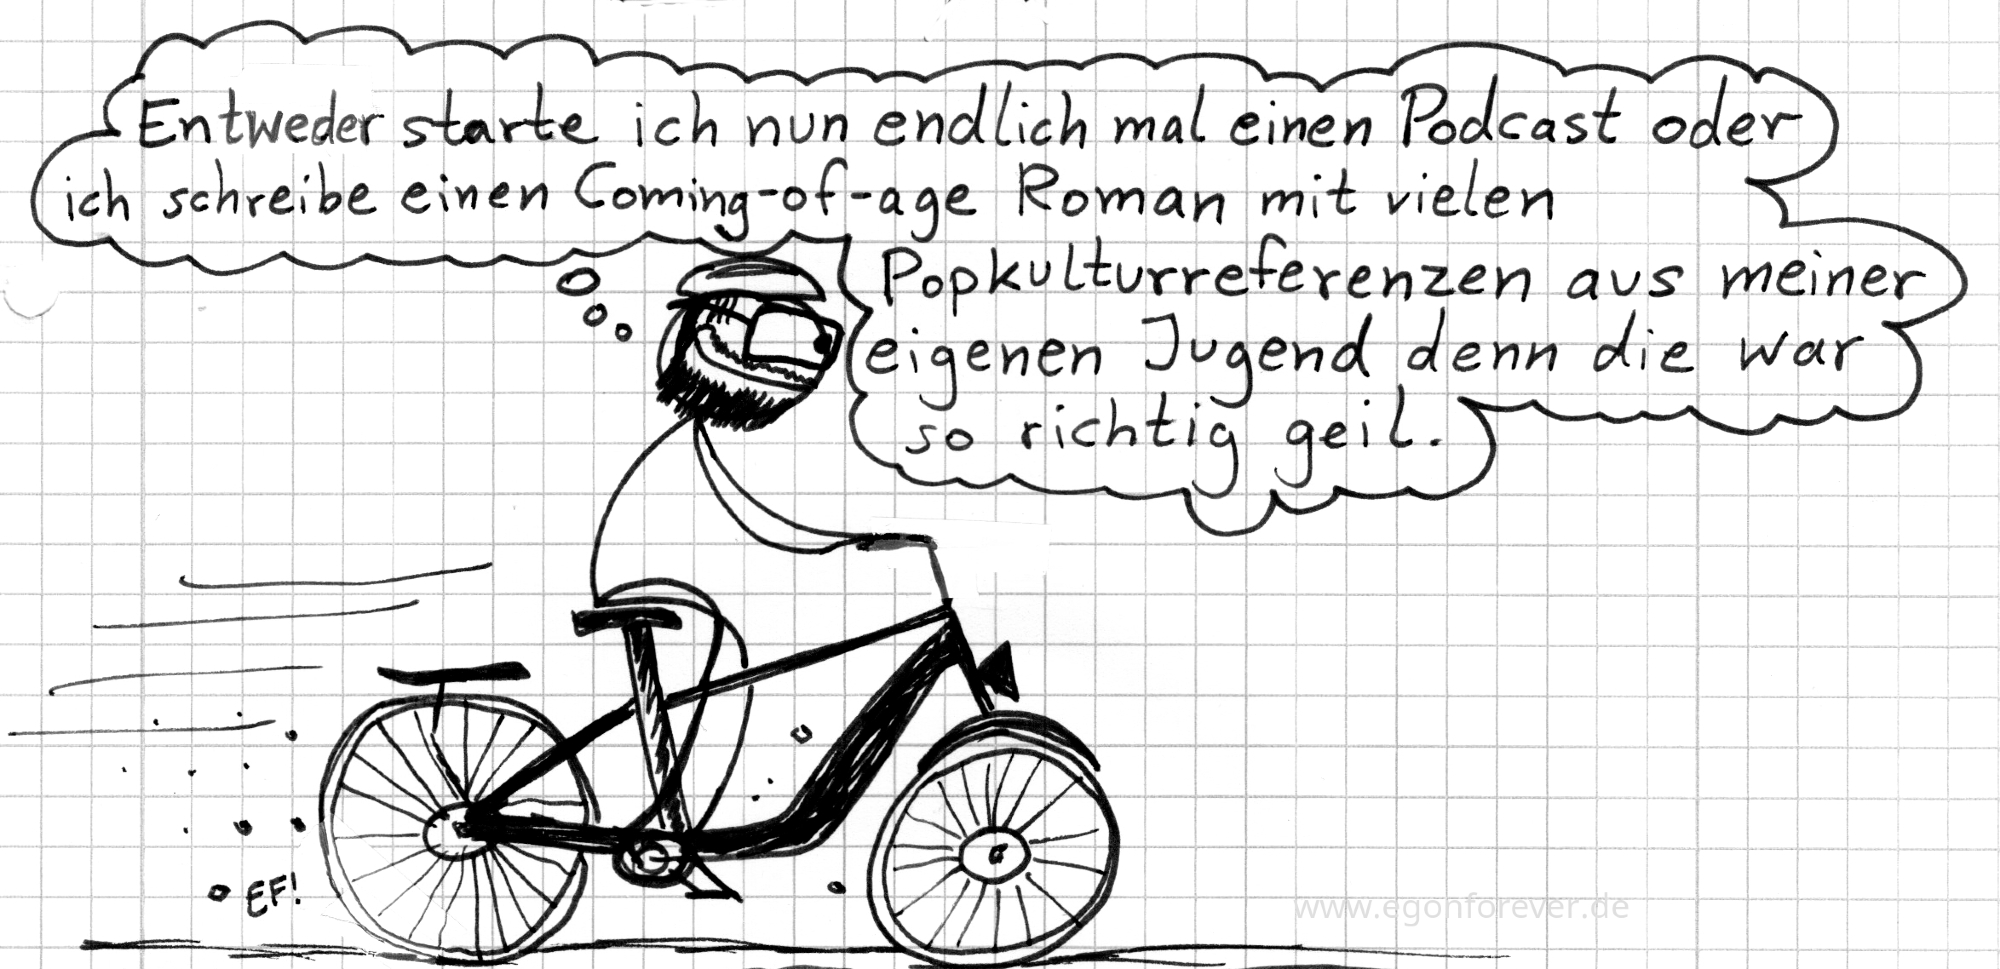 Entweder starte ich nun endlich mal einen Podcast oder
ich schreibe einen Coming-of-age Roman mit vielen
Popkulturreferenzen aus meiner
eigenen Jugend denn die war
so richtig geil.
EF!
www.egonforever.de